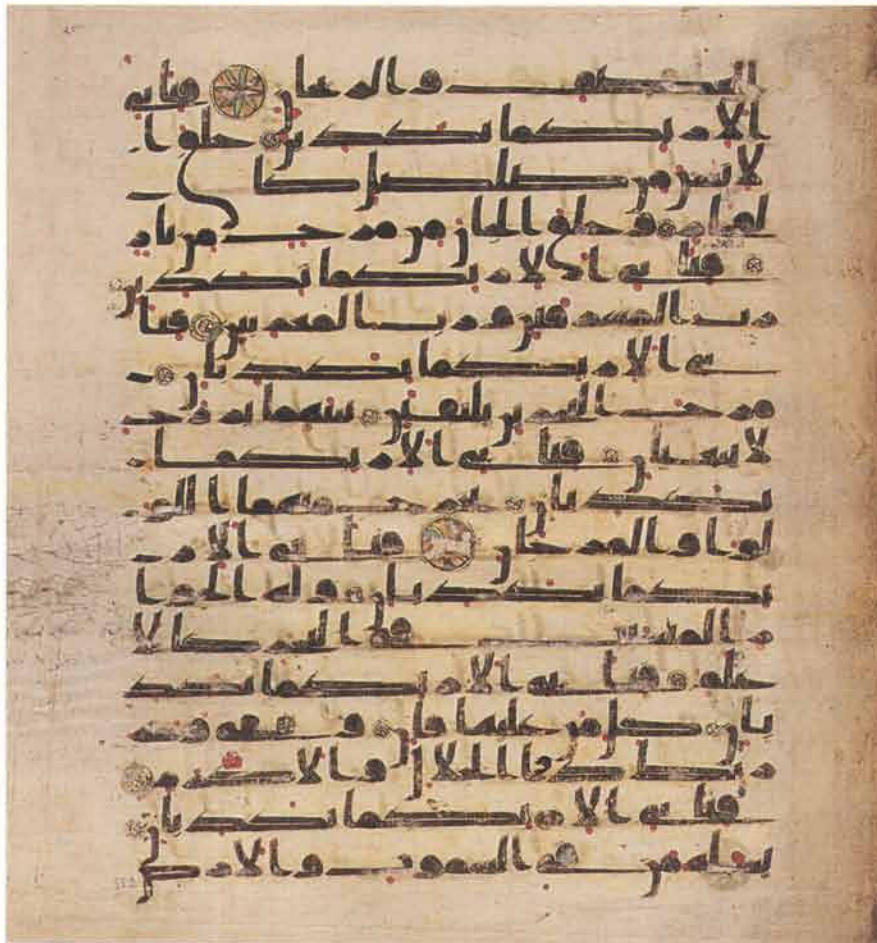 العصف والريحان فباي
الا ربكما تكذبن خلق ا
لانسن من صلصل كا
لفخار وخلق الجان من مرج من نار
فباي الا ربكما تكذبن
رب المشرقين ورب المغربين فبا
ي الا ربكما تكذبان
مرج البحرين يلتقين بينهما برزخ
لا يبغيان فباي الا ربكما
تكذبان يخرج منهما اللو
لوا والمرجان فباي الا ر
بكما تكذبان وله الجوا
ر المنشت في البحر كالا
علم فباي الا ربكما تكذ
بان كل من عليها فان ويبقى وجه
ربك ذو الجلل والاكرم
فباي الا ربكما تكذبان
يسله من في السموت والارض